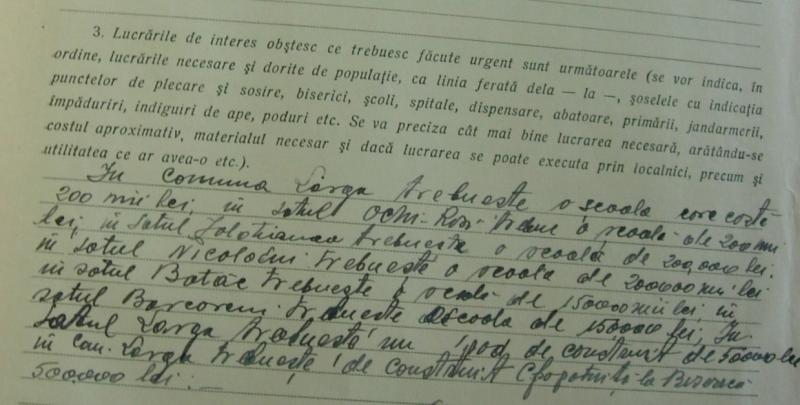 3. Lucrările de interes obștesc ce trebuesc făcute urgent sunt următoarele (se vor indica, în
ordine, lucrările necesare și dorite de populație, ca linia ferată dela — la —, șoselele cu indicația
punctelor de plecare și sosire, biserici, școli, spitale, dispensare, abatoare, primării, jandarmerii,
împăduriri, indiguiri de ape, poduri etc. Se va preciza cât mai bine lucrarea necesară, arătându-se
costul aproximativ, materialul necesar și dacă lucrarea se poate executa prin localnici, precum și
utilitatea ce ar avea-o etc.).
In comuna Larga trebuește o școală care costă
200 mii lei, in satul Ochi- o școală de 200 mii
lei, in satul trebuește o școală de 200,000 lei.
in satul Trebuește o școala de lei
in satul Trebuește o școală de lei, in
satul trebuește o școala de 150000 lei, In
satul Larga trebuește un pod de construit de 50000 lei
in com. Larga trebuește de construit la
500.000 lei. —